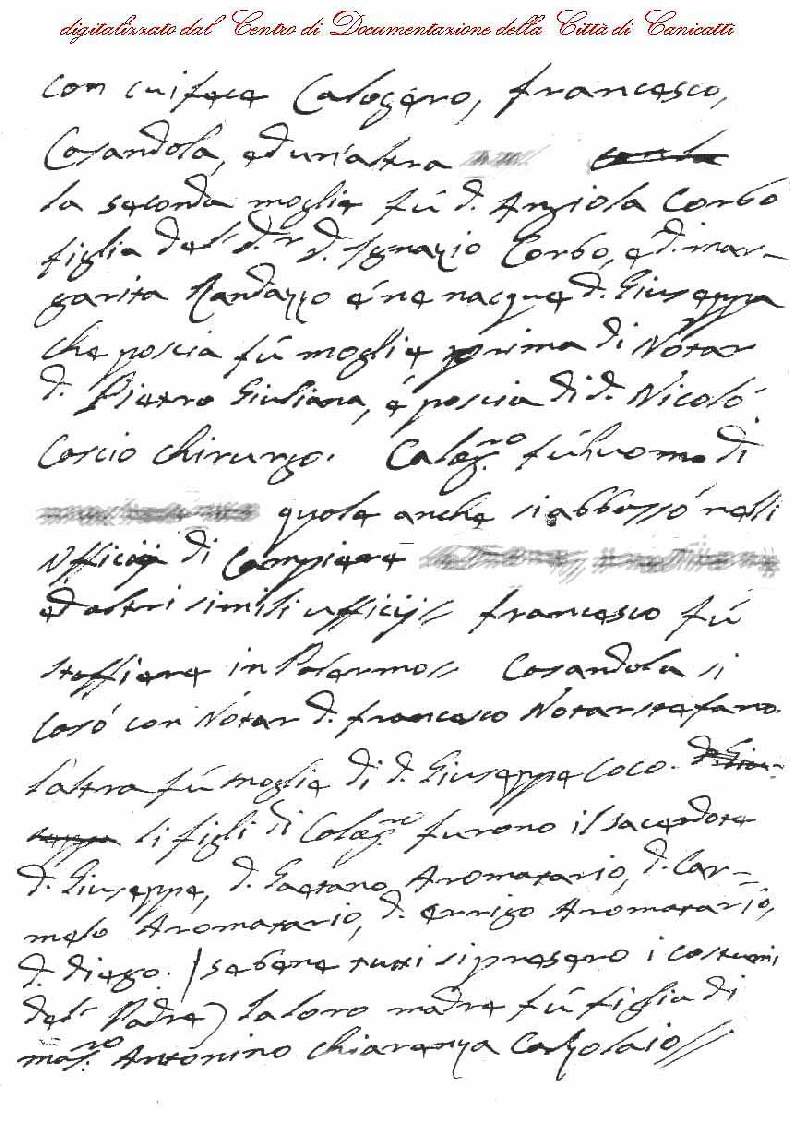 digitalizzato dal Centro di Documentazione della Città di Canicattì
con cui fece Calogero, francesco,
Casandola, ed un'altra
la seconda moglie fù d. Anziola Corbo
figlia del d.r d. Ignazio Corbo, e d. mar-
garita Randazzo é ne nacque d. Giuseppa
che poscia fú moglie prima di Notar
d. Pietro Giuliana, é poscia di d. Nicoló
Coscio chirurgo. Calog.ro fú huomo di
quale anche si abbassó nelli
Ufficij di Campiere
ed altri simili ufficij// francesco fú
staffiere in Palermo// Casandola si
Casó con Notar d. francesco Notarstefano
l'altra fú moglie di d. Giuseppe Coco.
li figli di Calog.ro furono il sacerdote
d. Giuseppe, d. Gaetano Aromatario, d. Car-
melo Aromatario, d. errigo Aromatario,
d. diego. (sebene tutti si presero i costumi
del Padre) la loro madre fú figlia di
mas.ro Antonino Chiarenza Calzolaio//